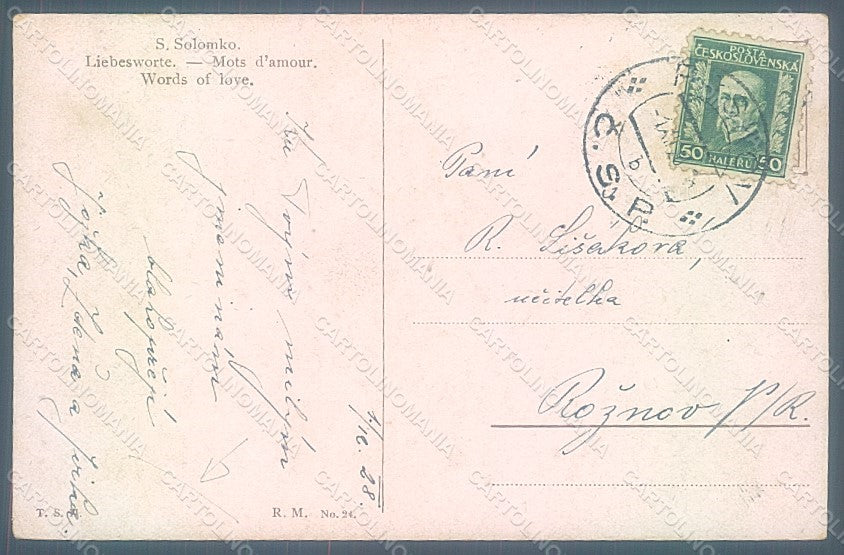 S. Solomko.
Liebesworte. — Mots d'amour.
Words of love.
Ku Tvojim milým
jmeninám
blahopřejí
Jožka, Zdena a Jirka.
7/10. 28.
T. S.
R. M. No. 24.
POŠTA
ČESKOSLOVENSKÁ
50 HALÉŘŮ 50
Č. S. P.
Paní
R. Lišáková,
učitelka
Rožnov p/R.
CARTOLINOMANIA